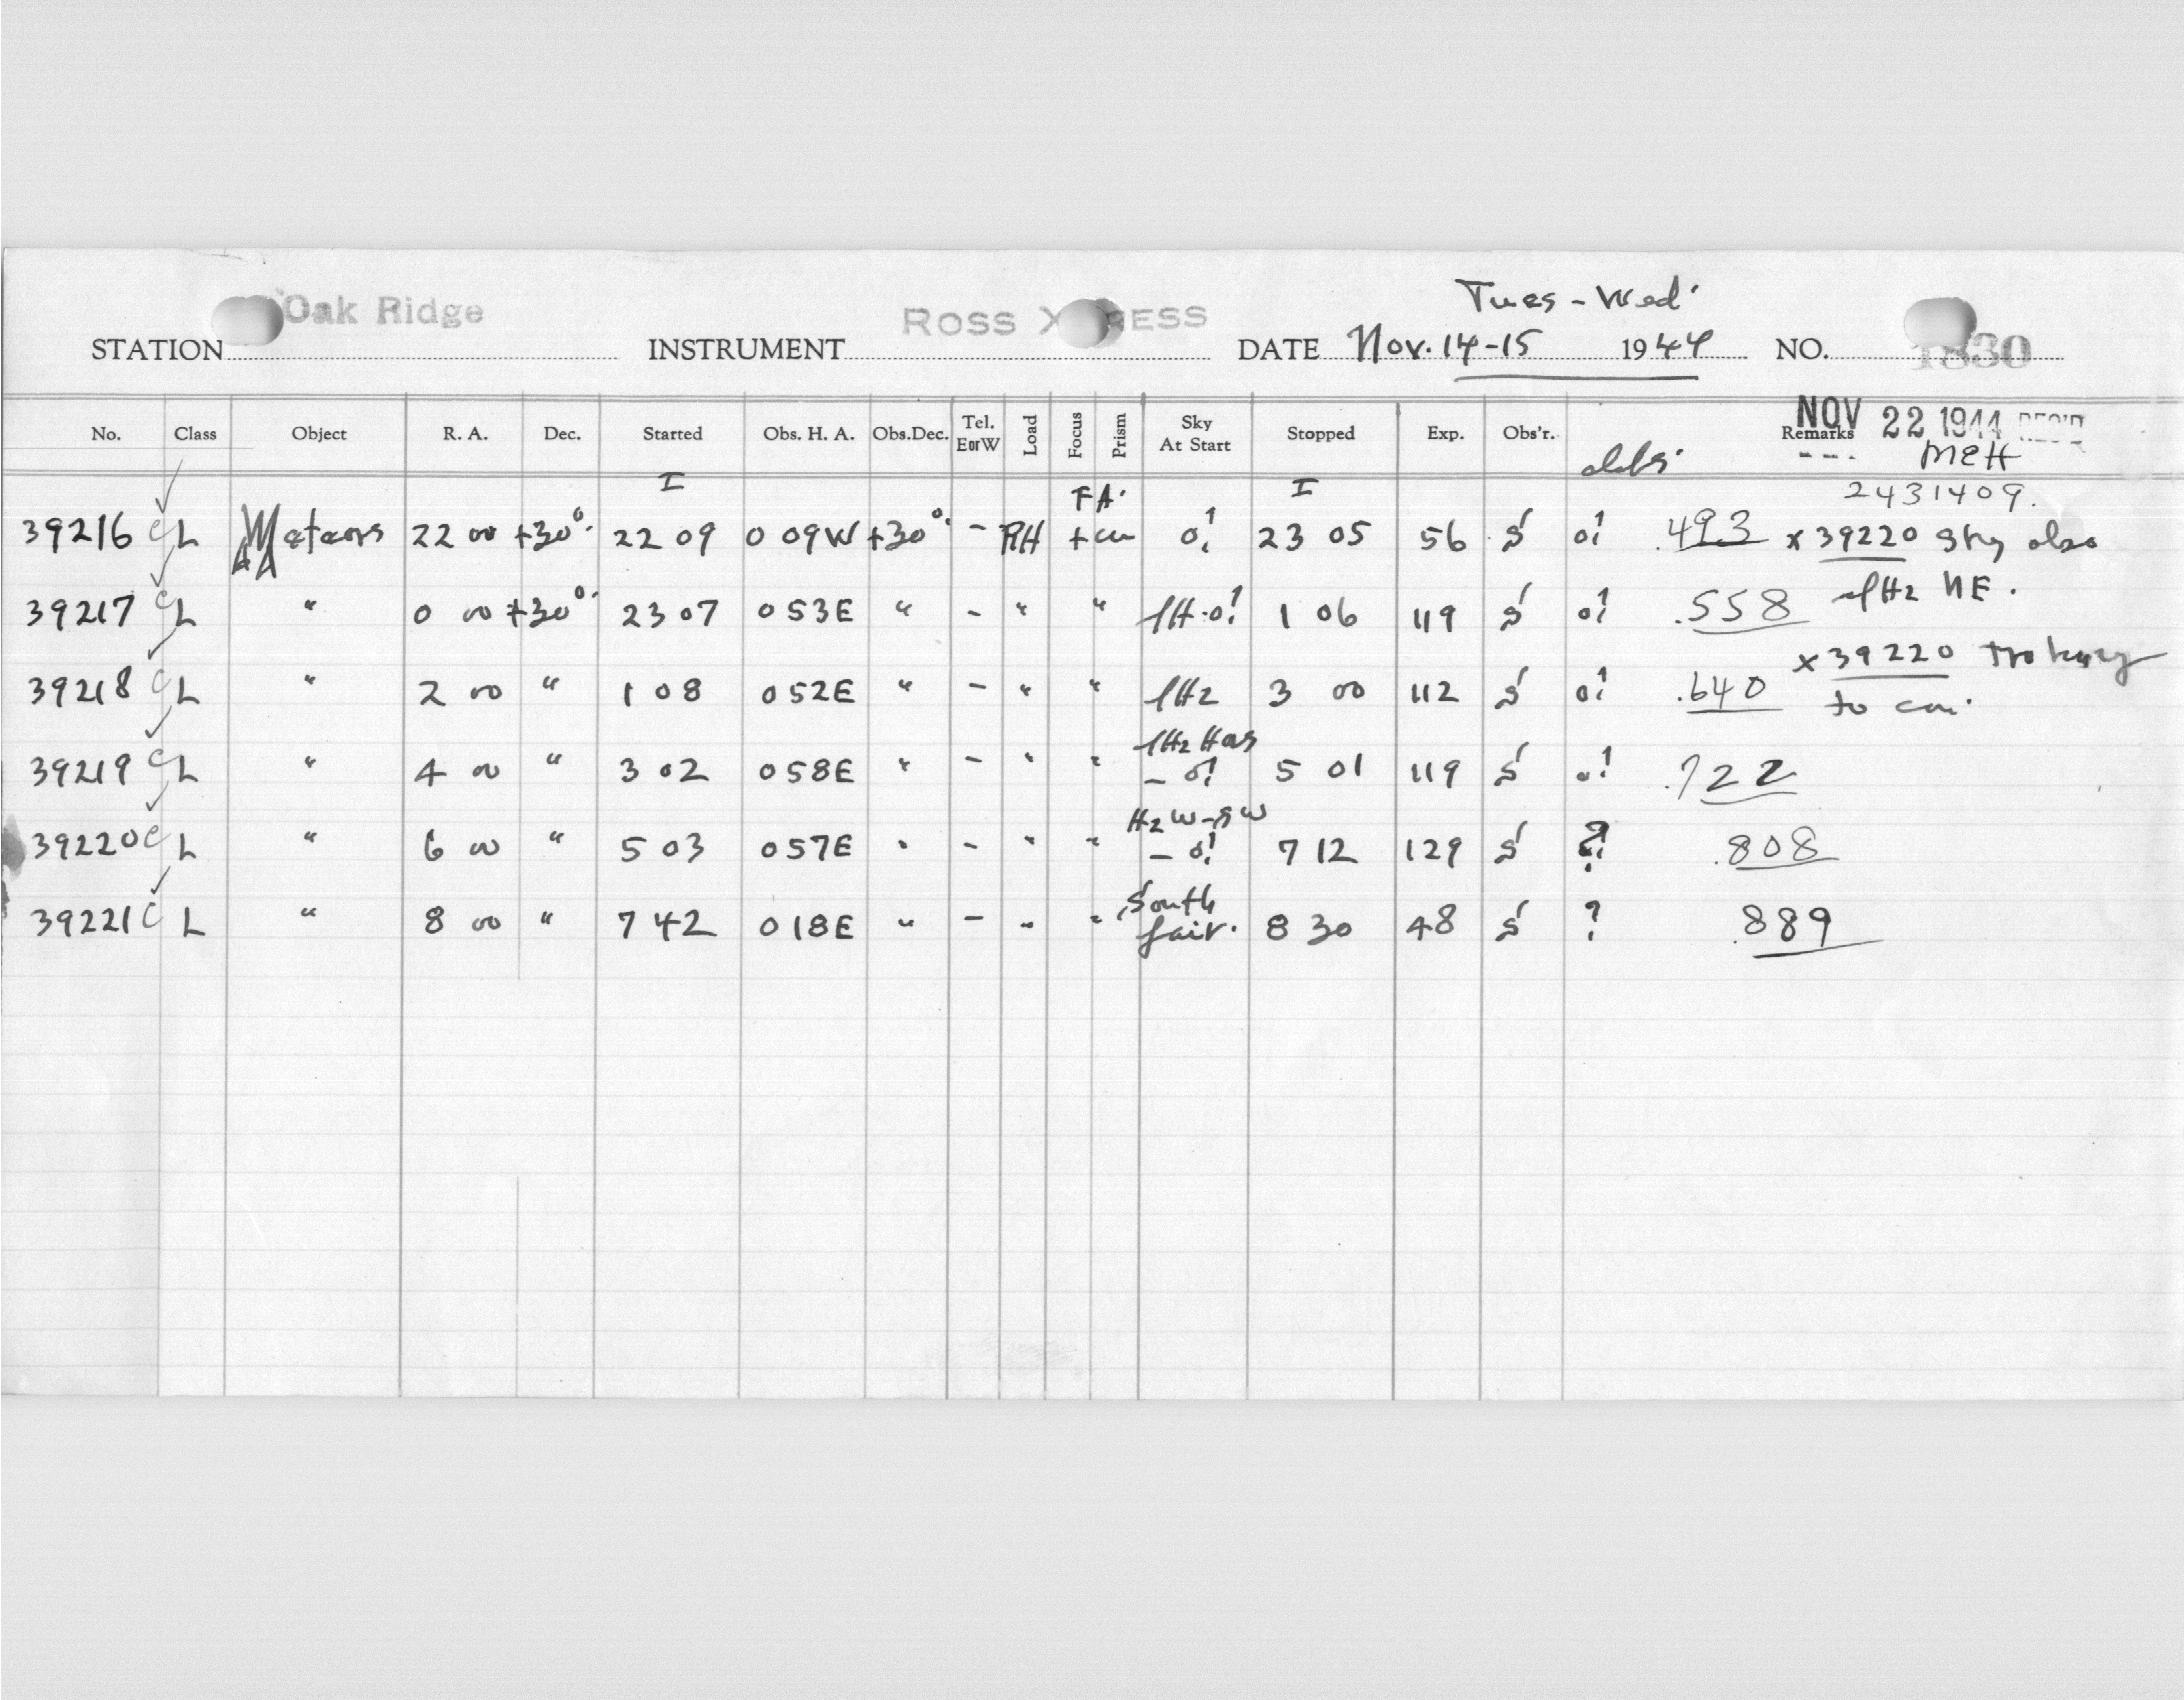 Tues - Wed.
STATION Oak Ridge INSTRUMENT ROSS X ESS DATE Nov. 14-15 1944 NO. 1830
No. Class Object R. A. Dec. Started Obs. H. A. Obs.Dec. Tel. E or W Load Focus Prism Sky At Start Stopped Exp. Obs'r. Remarks
NOV 22 1944 REC'D
MEH
I FA. I 2431409.
39216 C L Meteors 22 00 +30° 22 09 0 09W +30° - RH + 0! 23 05 56 S 0! .493 x 39220 Sky also
39217 C L " 0 00 +30° 23 07 0 53E " - " " 1H-0! 1 06 119 S 0! .558 1Hz NE.
39218 C L " 2 00 " 1 08 0 52E " - " " 1Hz 3 00 112 S 0! .640 x 39220
to
39219 C L " 4 00 " 3 02 0 58E " - " " 1Hz Has - 0! 5 01 119 S 0! .722
39220 C L " 6 00 " 5 03 0 57E " - " " Hz W-SW - 0! 7 12 129 S ? .808
39221 C L " 8 00 " 7 42 0 18E " - " " South fair. 8 30 48 S ? .889